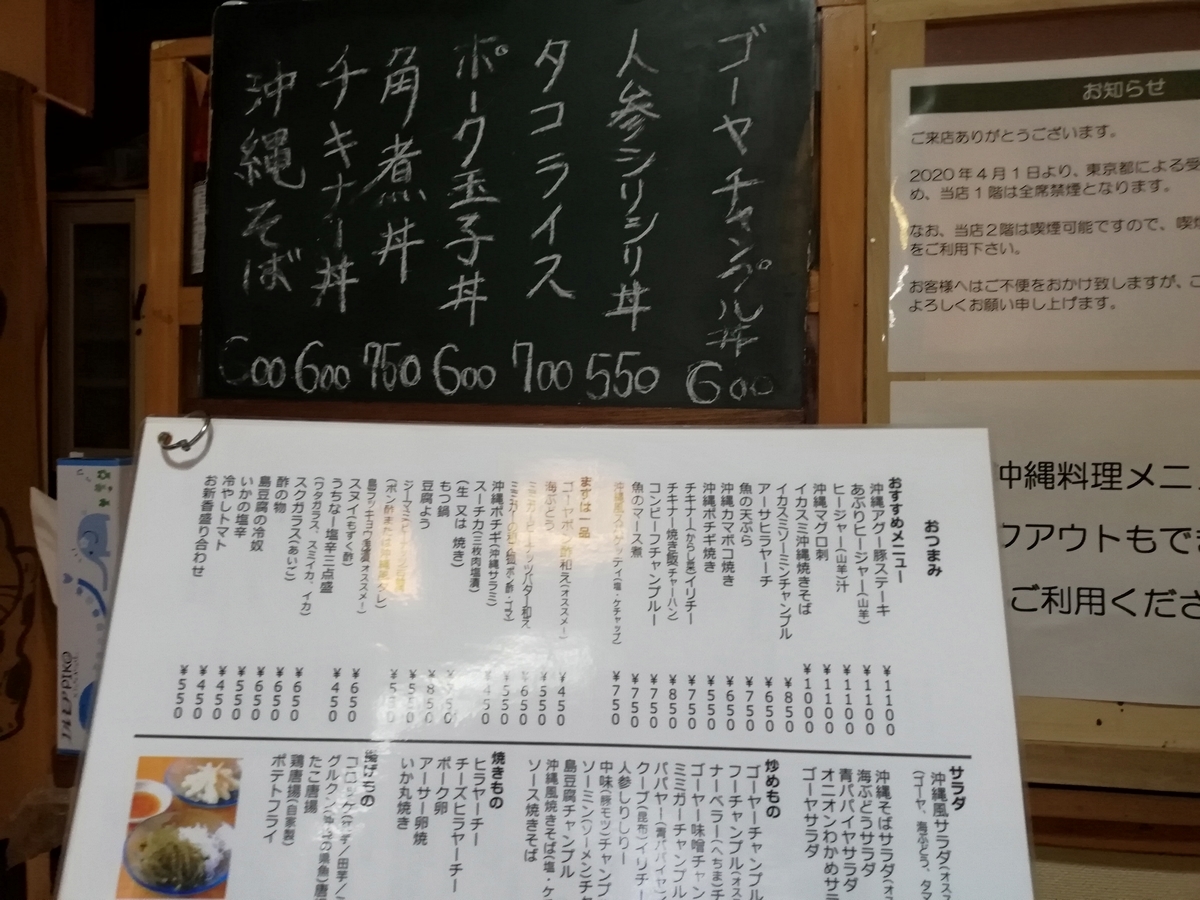 ゴーヤチャンプル丼 600
人参シリシリ丼 550
タコライス 700
ポーク玉子丼 600
角煮丼 750
チキナー丼 600
沖縄そば 600
お知らせ
ご来店ありがとうございます。
2020年4月1日より、東京都による受
め、当店1階は全席禁煙となります。
なお、当店2階は喫煙可能ですので、喫
をご利用下さい。
お客様へはご不便をおかけ致しますが、ご
よろしくお願い申し上げます。
沖縄料理メニ
フアウトもでき
ご利用くださ
おつまみ
おすすめメニュー
沖縄アグー豚ステーキ ¥1100
あぶりヒージャー(山羊) ¥1100
ヒージャー(山羊)汁 ¥1100
沖縄マグロ刺 ¥1100
イカスミ沖縄焼きそば ¥1000
イカスミソーミンチャンプル ¥850
アーサヒラヤーチ ¥650
魚の天ぷら ¥750
沖縄カマボコ焼き ¥650
沖縄ポチギ焼き ¥550
チキナー(からし菜)イリチー ¥750
チキナー焼き飯(チャーハン) ¥850
コンビーフチャンプルー ¥750
魚のマース煮 ¥750
沖縄風スパゲッティ(塩・ケチャップ) ¥750
まずは一品
ゴーヤポン酢和え(オススメー) ¥450
海ぶどう ¥550
ミミガーピーナッツバター和え ¥650
ミミガーの和え物(ポン酢・ゴマ) ¥550
沖縄ポチギ(沖縄サラミ) ¥450
スーチカ(三枚肉塩漬)
(生 又は 焼き)
もつ鍋
豆腐よう
ジーマミ
(ポン酢または沖縄
島ラッキョウ
スヌイ(もずく酢)
うちなー塩辛三点盛
(ワタガラス、スミイカ、イカ)
スクガラス(あいご)
酢の物 ¥650
島豆腐の冷奴 ¥650
いかの塩辛 ¥550
冷やしトマト ¥450
お新香盛り合わせ ¥550
サラダ
沖縄風サラダ(オス
(ゴーヤ、海ぶどう、タマ
沖縄そばサラダ(オス
海ぶどうサラダ
青パパイヤサラダ
オニオンわかめサラ
ゴーヤサラダ
炒めもの
ゴーヤーチャンプル
フーチャンプル(オス
ナーベラー(へちま)チ
ゴーヤー味噌チャン
ミミガーチャンプル
パパヤー(青パパイヤ
クーブ(昆布)イリチー
人参しりしりー
中味(豚モツ)チャンプ
ソーミン(ソーメン)チャ
島豆腐チャンプル
沖縄風焼きそば(塩・ケ
ソース焼きそば
焼きもの
ヒラヤーチー
チーズヒラヤーチー
ポーク卵
アーサー卵焼
いか丸焼き
揚げもの
コロッケ
グルクン(沖縄の県魚)唐
たこ唐揚
鶏唐揚(自家製)
ポテトフライ